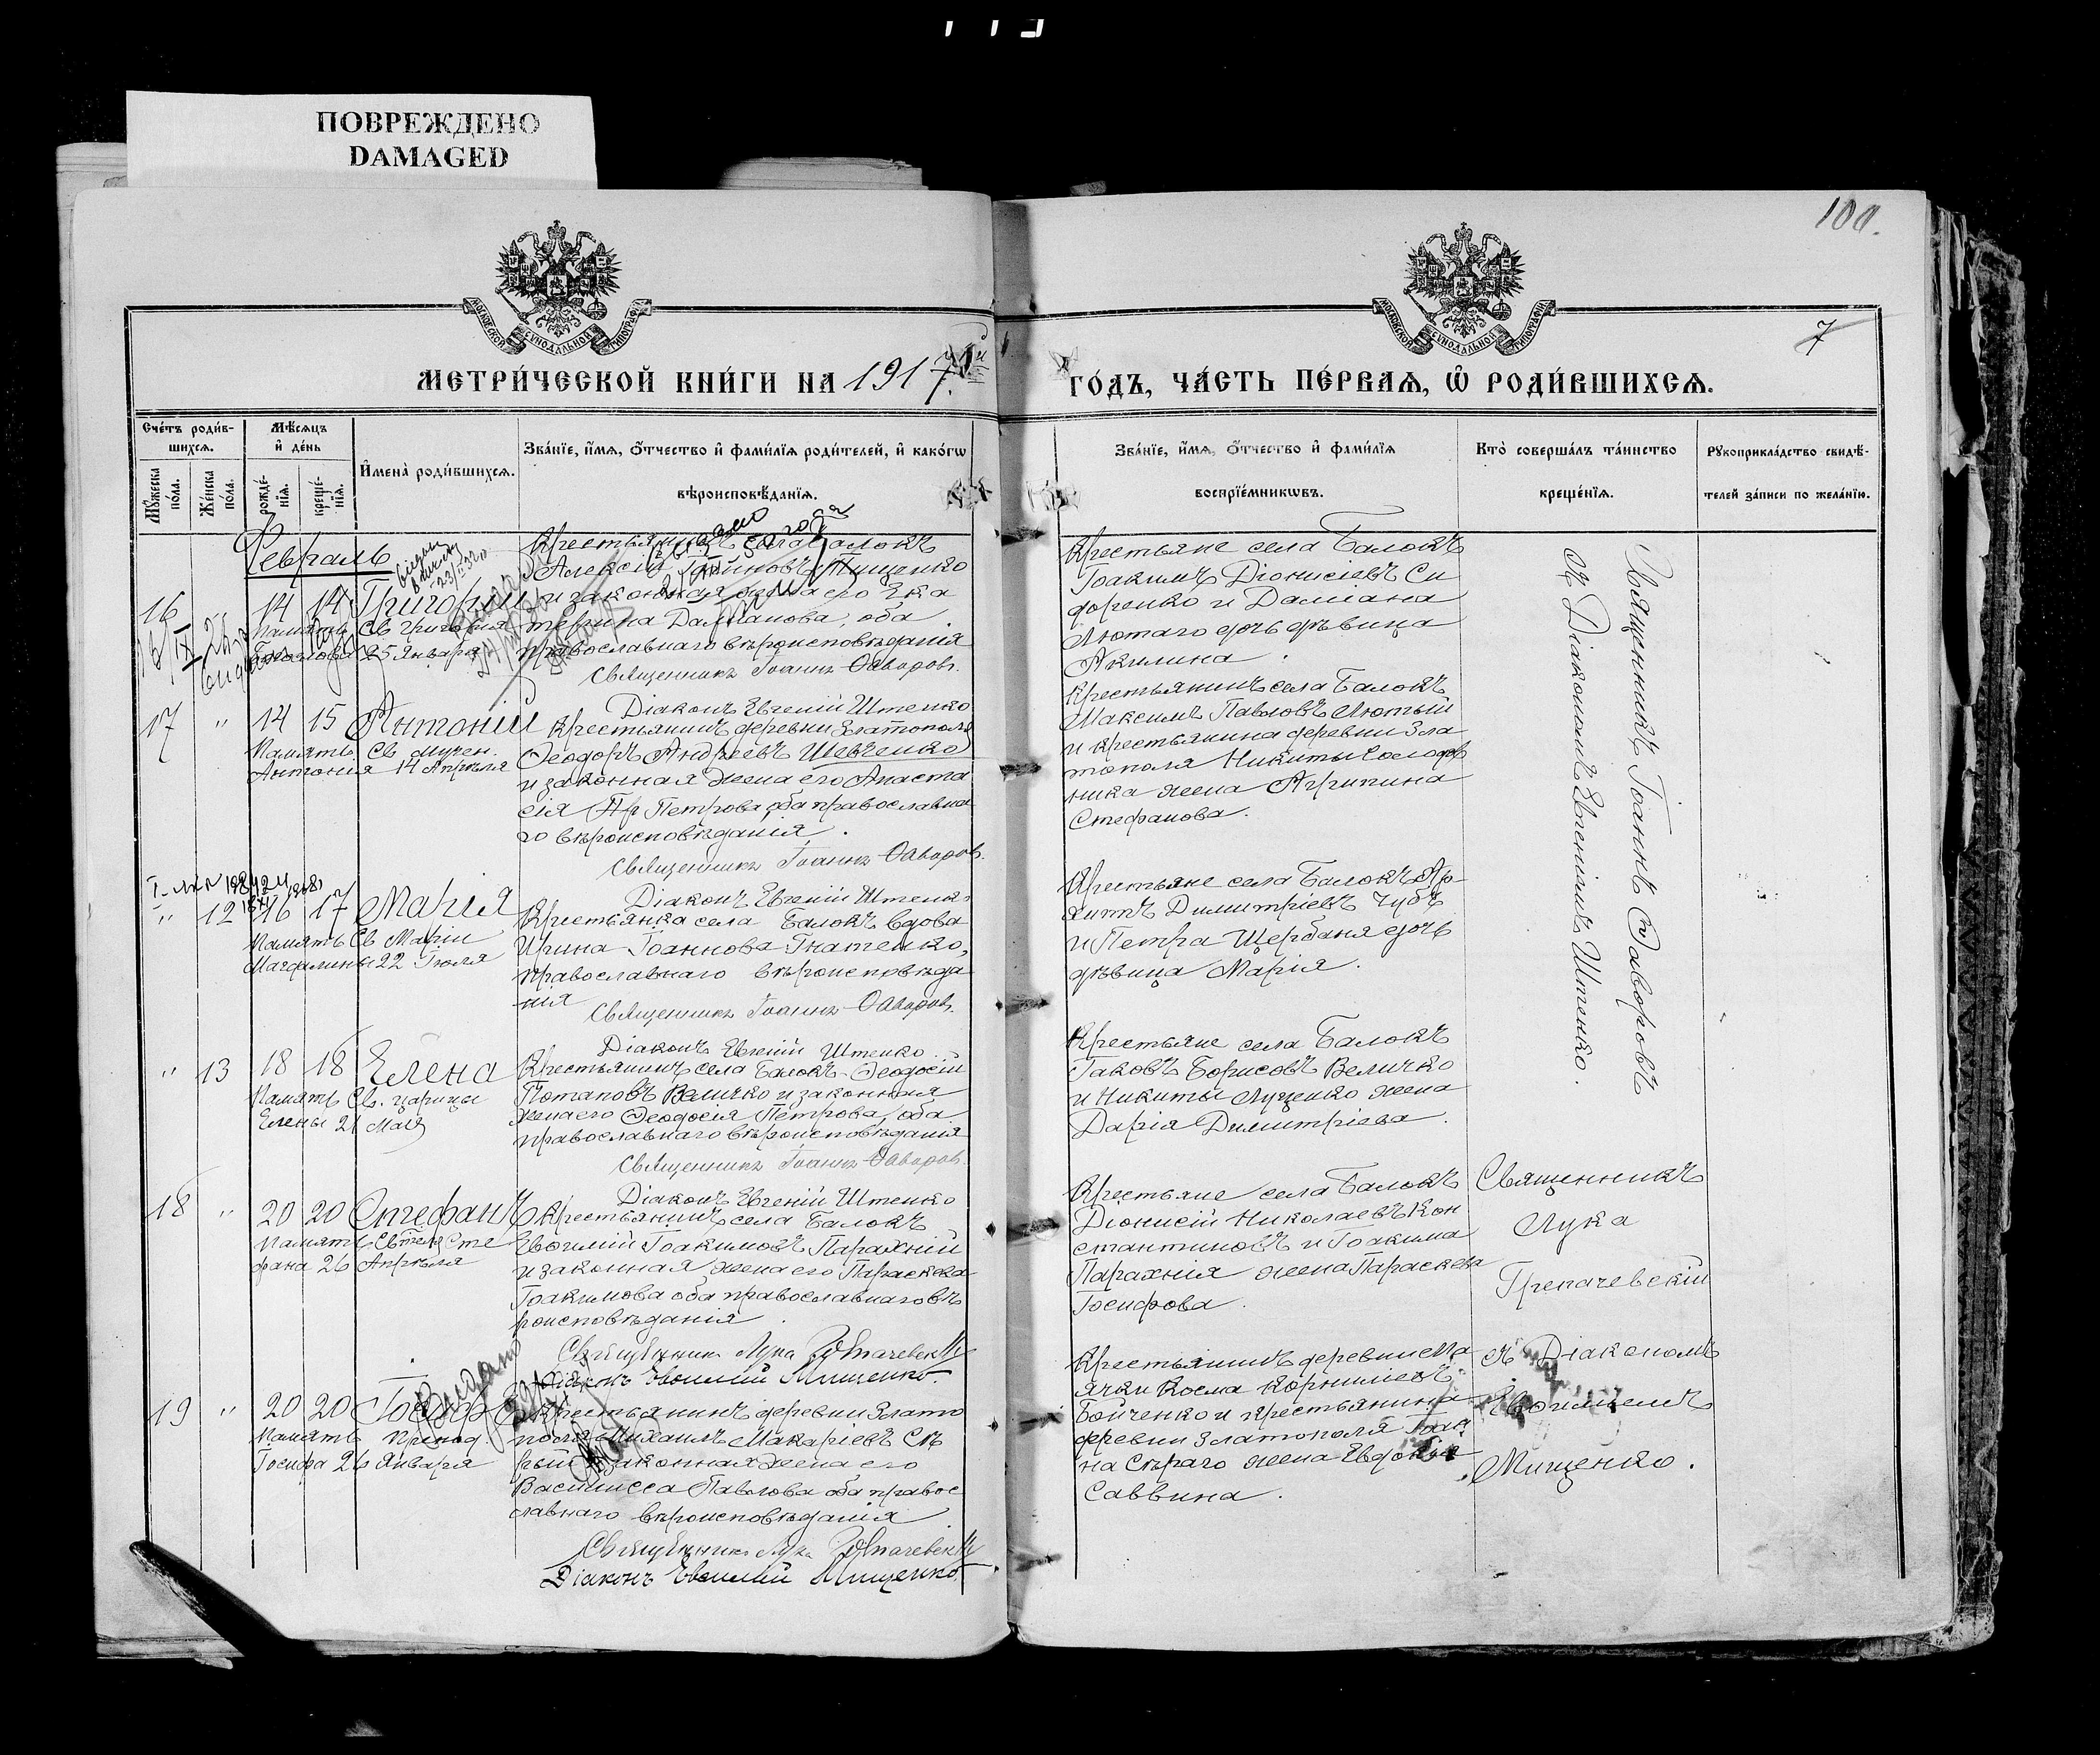 ПОВРЕЖДЕНО
DAMAGED
100.
7
МОСКОВСКОЙ СѴНОДАЛЬНОЙ ТИПОГРАФІИ
МОСКОВСКОЙ СѴНОДАЛЬНОЙ ТИПОГРАФІИ
МЕТРИ́ЧЕСКОЙ КНИ́ГИ НА 1917й
ГО́ДЪ, ЧА́СТЬ ПЕ́РВАѦ, Ѡ҆ РОДИ́ВШИХСѦ.
Сче́тъ роди́в-
шихся.
Мѣ́сяцъ
и҆ де́нь
Мꙋ́жеска
по́ла.
Же́нска
по́ла.
рожде́-
нїѧ.
креще́-
нїѧ.
И҆мена̀ роди́вшихсѧ.
Зва́нїе, и҆́мѧ, ѻ҆́тчество и҆ фами́лїѧ роди́телей, и҆ како́гѡ
вѣроисповѣ́данїѧ.
Зва́нїе, и҆́мѧ, ѻ҆́тчество и҆ фами́лїѧ
воспрїе́мникѡвъ.
Кто̀ соверша́лъ та́инство
креще́нїѧ.
Рꙋкоприкла́дство свидѣ́-
телей за́писи по жела́нїю.
Февраль
16 " 14 14 Григорій
Память Св Григорія
Богослова 25 Января
Крестьянинъ села Балокъ
Алексій Іоанновъ Тищенко
и законная жена его Ека
терина Даміанова, оба
православнаго вѣроисповѣданія
Священникъ Іоаннъ Ѳаворовъ.
Діаконъ Евгеній Штепко
Крестьяне села Балокъ
Іоакимъ Діонисіевъ Си
доренко и Даміана
Лютаго дочь дѣвица
Акилина.
17 " 14 15 Антоній
Память Св Мучен.
Антонія 14 Апрѣля
Крестьянинъ деревни Златополя
Ѳеодоръ Андреевъ Шевченко
и законная жена его Анаста
сія Петрова, оба православна
го вѣроисповѣданія.
Священникъ Іоаннъ Ѳаворовъ.
Діаконъ Евгеній Штепко
Крестьянинъ села Балокъ
Максимъ Павловъ Лютый
и крестьянина деревни Зла
тополя Никиты
жена Агрипина
Стефанова.
" 12 16 17 Марія
Память Св Маріи
Магдалины 22 Іюля
Крестьянка села Балокъ вдова
Ирина Іоаннова Гнатенко,
православнаго вѣроисповѣда
нія
Священникъ Іоаннъ Ѳаворовъ.
Діаконъ Евгеній Штепко
Крестьяне села Балокъ Ар-
хипъ Димитріевъ Чубъ
и Петра Щербаня дочь
дѣвица Марія.
" 13 18 18 Елена
Память Св. царицы
Елены 21 Мая
Крестьянинъ села Балокъ Ѳеодосій
Потаповъ Величко и законная
жена его Ѳеодосія Петрова, оба
православнаго вѣроисповѣданія
Священникъ Іоаннъ Ѳаворовъ.
Діаконъ Евгеній Штепко
Крестьяне села Балокъ
Іаковъ Борисовъ Величко
и Никиты Луценко жена
Дарія Димитріева.
Священникъ Іоаннъ Ѳаворовъ
съ Діакономъ Евгеніемъ Штепко.
18 " 20 20 Стефанъ
Память Святителя Сте
фана 26 Апрѣля
Крестьянинъ села Балокъ
Евѳимій Іоакимовъ Парахній
и законная жена его Параскева
Іоакимова оба православнаго вѣ
роисповѣданія.
Священникъ Лука
Діаконъ Евѳимій Мищенко.
Крестьяне села Балокъ
Діонисій Николаевъ Кон
стантиновъ и Іоакима
Парахнія жена Параскева
Іосифова.
Священникъ
Лука
19 " 20 20 Іосифъ
Память препод.
Іосифа 26 Января
Крестьянинъ деревни Злато
поля Михаилъ Макаріевъ Сѣ
рый и законная жена его
Васиписса Павлова оба правос
славнаго вѣроисповѣданія
Священникъ Лука
Діаконъ Евѳимій Мищенко.
Крестьянинъ деревни Ма
ячки Косма Корниліевъ
Бойченко и крестьянина
деревни Златополя Іоан
на Сѣраго жена Евдокія
Саввина.
съ Діакономъ
Евѳиміемъ
Мищенко.